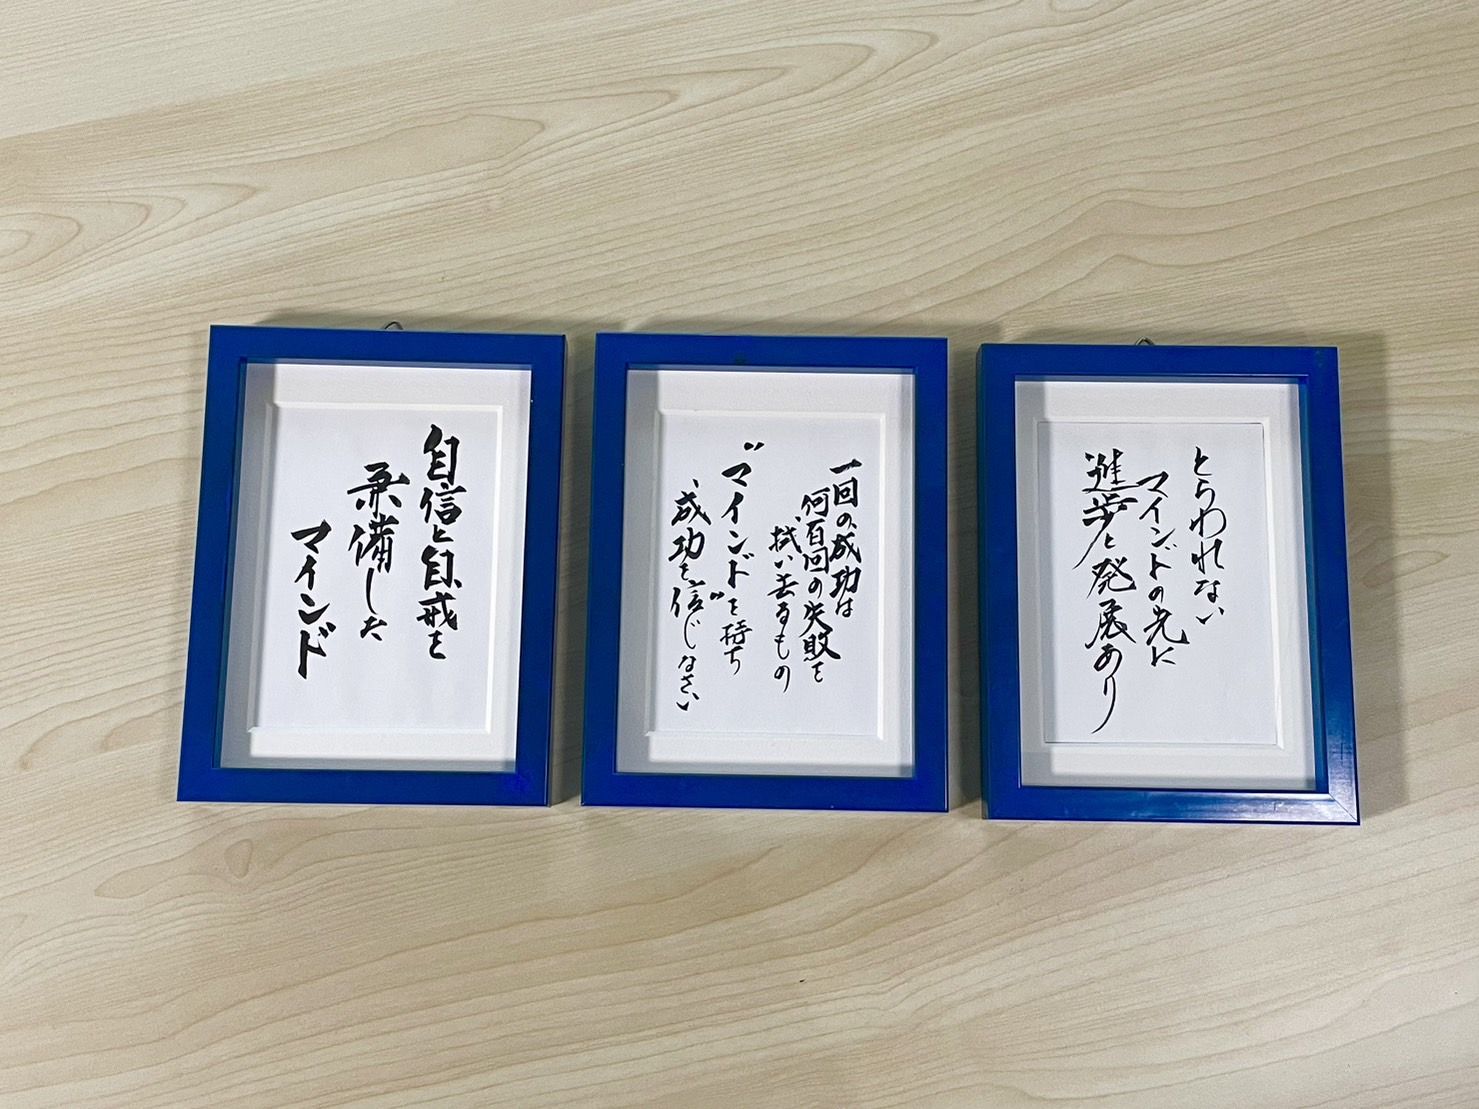 自信と自戒を
兼備した
マインド
一回の、成功は
何百回の失敗を
拭い去るもの
“マインド”を持ち
、成功を信じなさい
とらわれない
マインドの光に
進歩と発展あり